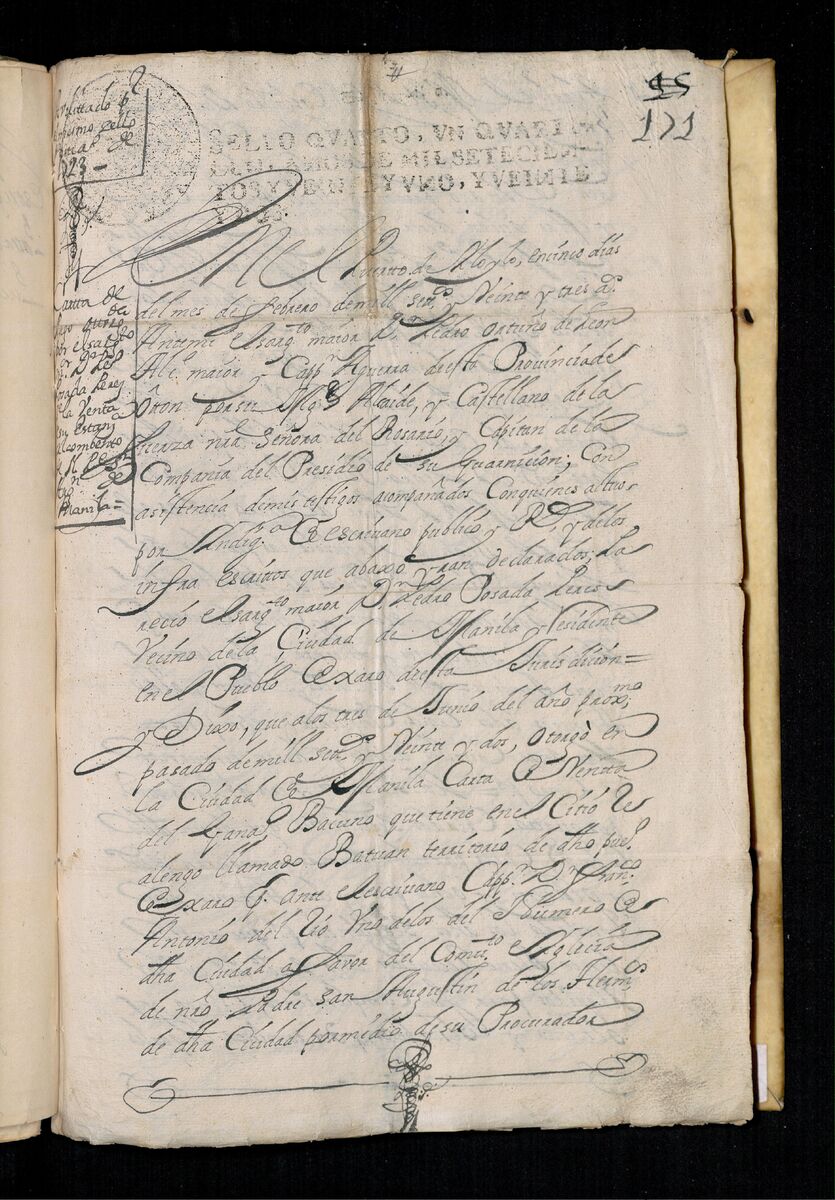 171
SELLO QVARTO, VN QVARTI-
LLO, AÑOS DE MIL SETECIEN-
TOS Y VEINTE Y VNO, Y VEINTE
Y DOS.
1723
Cartta de
la Venta
Manila=
En el Puertto de Yloylo, en cinco dias
del mes de febrero de mill setos. y Veinte y tres as.
Antemi el sargto maior Dn Pedro ortuño de Leon
Alc. maior y Cappn Aguerra desta Provincia de
Oton por su Mgd Alcaide, y Castellano de la
fuerza nrã Señora del Rosario, y Capitan de la
Compania del Presidio de su Guarnicion; Con
asistencia de mis testigos acompañados Con quienes actuo
por escrivano publico y Rl y delos
infra escrittos que abaxo yran declarados, Pa
recio el sargto maior Dn Pedro Posada Peres
Vecino de la Ciudad de Manila y Residente
en el Pueblo de Xaro desta Jurisdicion=
y Dixo, que alos tres de Junio del año proxmo
pasado de mill setos y Veinte y dos, otorgò en
la Ciudad de Manila Carta de Venta
del Ganado Bacuno que tiene en el Citio Re
alengo llamado Batuan territorio de dho pueo
de Xaro pr ante el escrivano Cappn Dn Franco
Antonio del Rio Vno delos del Numero de
dha Ciudad a favor del Comto e Yglecia
de nrõ Padre san Augustin de los Herms
de dha Ciudad por medio de su Procurador